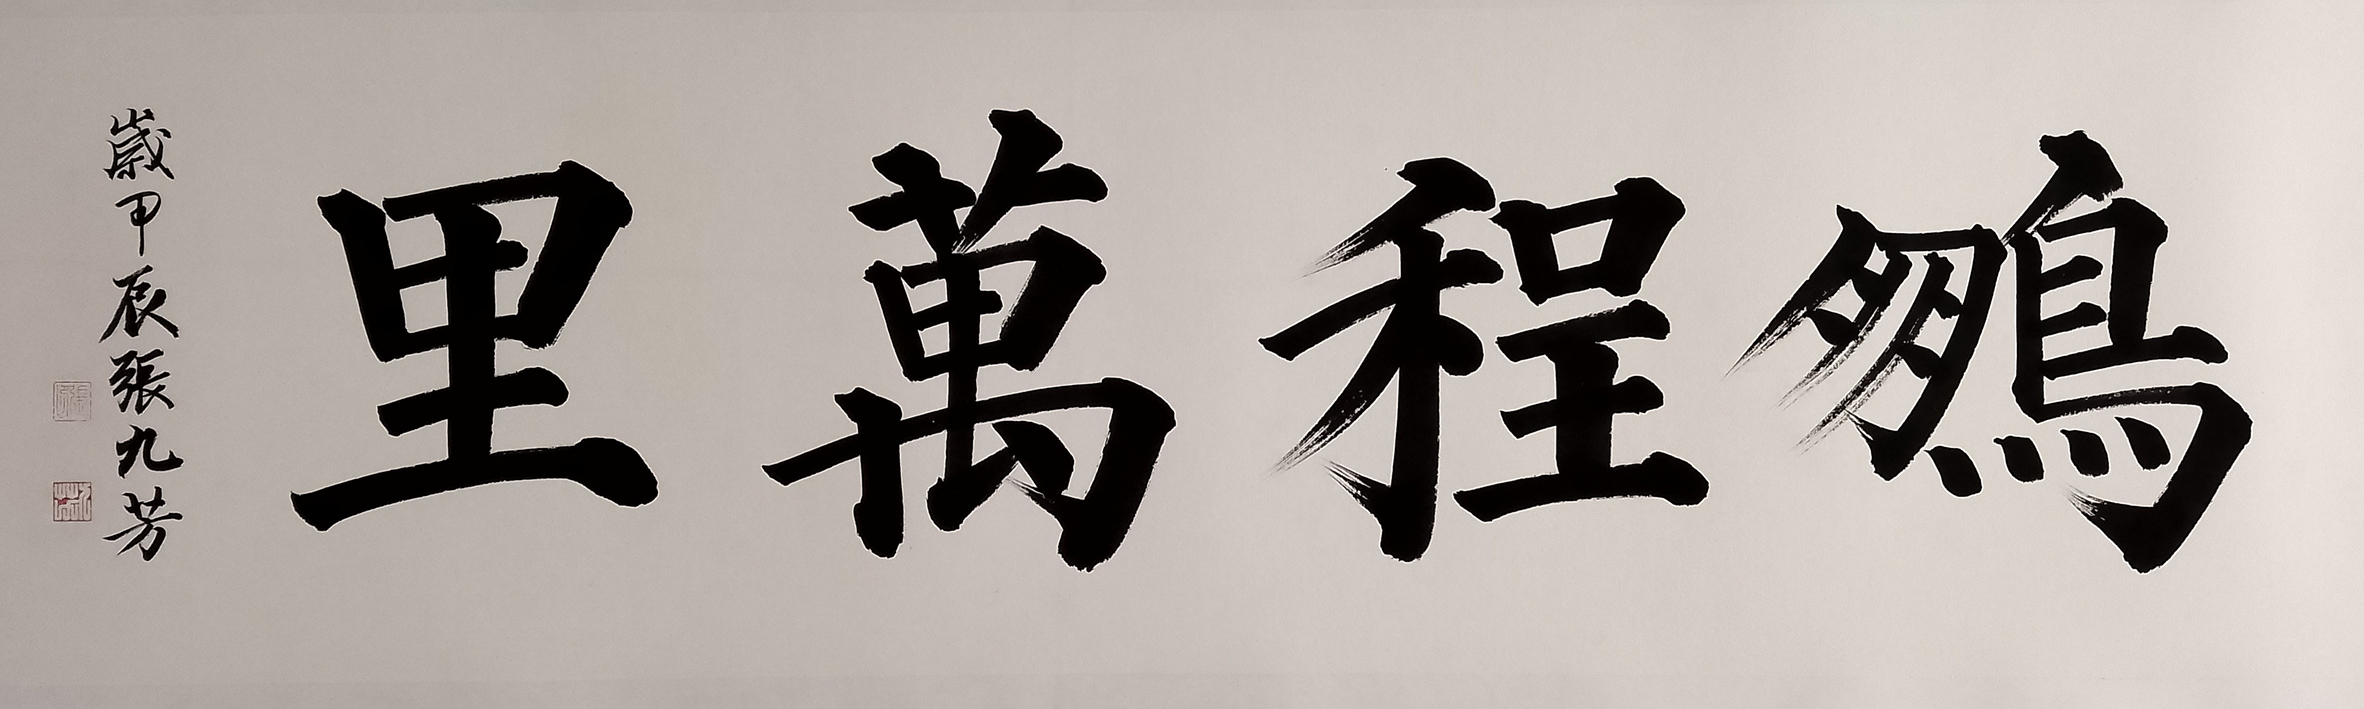 鵬程萬里
歲甲辰張九芳
九芳